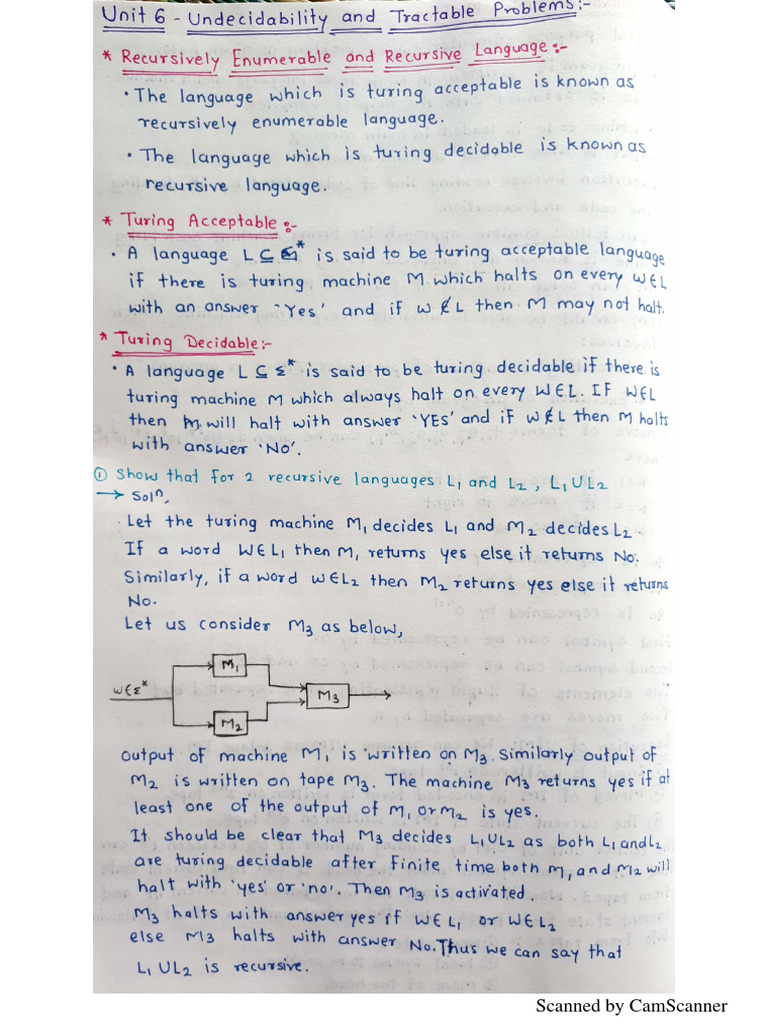 Unit 6 - Undecidability and Tractable Problems:-
* Recursively Enumerable and Recursive Language:-
• The language which is turing acceptable is known as
recursively enumerable language.
• The language which is turing decidable is known as
recursive language.
* Turing Acceptable:-
• A language L ⊆ Σ* is said to be turing acceptable language
if there is turing machine M which halts on every w∈L
with an answer 'Yes' and if w ∉ L then M may not halt.
* Turing Decidable:-
• A language L ⊆ Σ* is said to be turing decidable if there is
turing machine M which always halt on every W∈L. IF W∈L
then M will halt with answer 'YES' and if W∉L then M halts
with answer 'No'.
① Show that for 2 recursive languages L₁ and L₂, L₁UL₂
→ Solⁿ,
Let the turing machine M₁ decides L₁ and M₂ decides L₂.
If a word W∈L₁ then M₁ returns yes else it returns No.
Similarly, if a word w∈L₂ then M₂ returns yes else it returns
No.
Let us consider M₃ as below,
M₁
W∈Σ*
M₃
M₂
output of machine M₁ is written on M₃. Similarly output of
M₂ is written on tape M₃. The machine M₃ returns yes if at
least one of the output of M₁ or M₂ is yes.
It should be clear that M₃ decides L₁UL₂ as both L₁ and L₂
are turing decidable after Finite time both M₁ and M₂ will
halt with 'yes' or 'no'. Then M₃ is activated
M₃ halts with answer yes if W∈L₁ or W∈L₂
else M₃ halts with answer No. Thus we can say that
L₁UL₂ is recursive.
Scanned by CamScanner